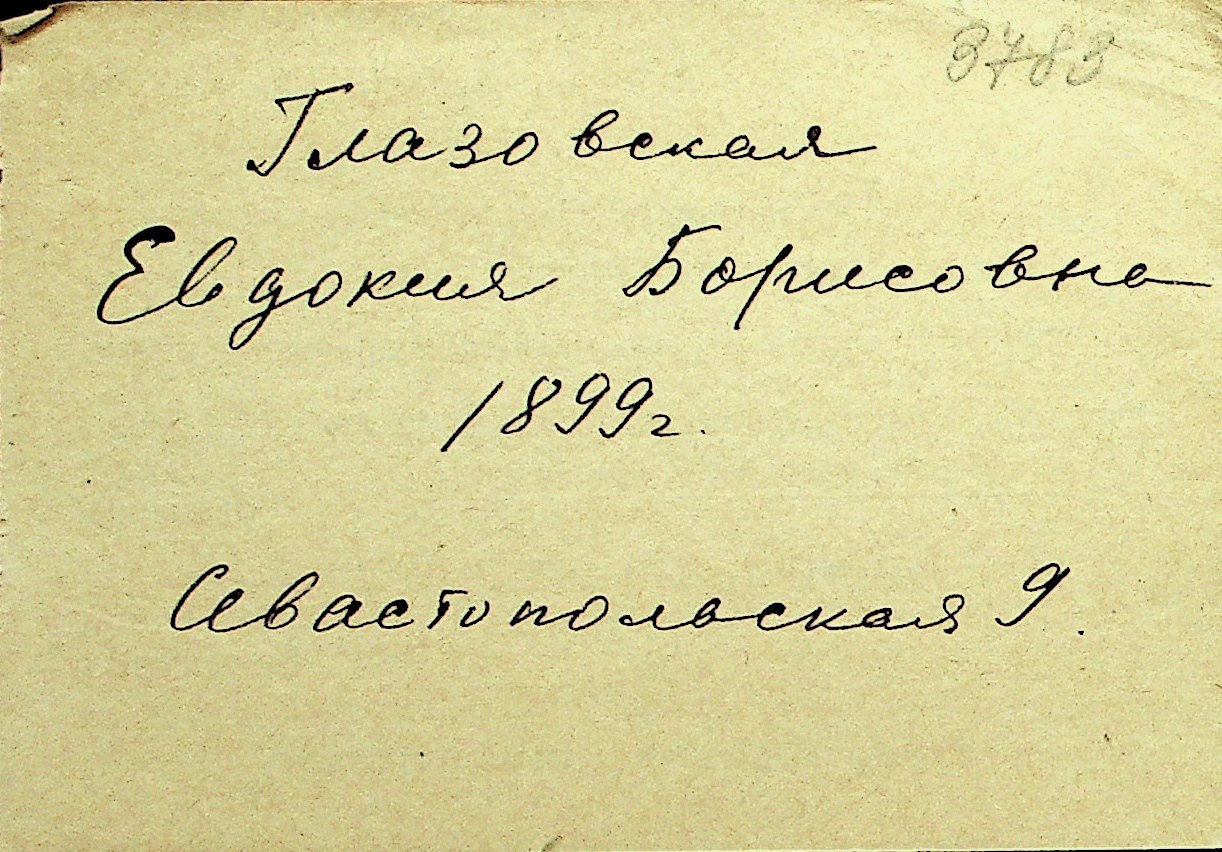 3783
Глазовская
Евдокия Борисовна
1899г.
Севастопольская 9.